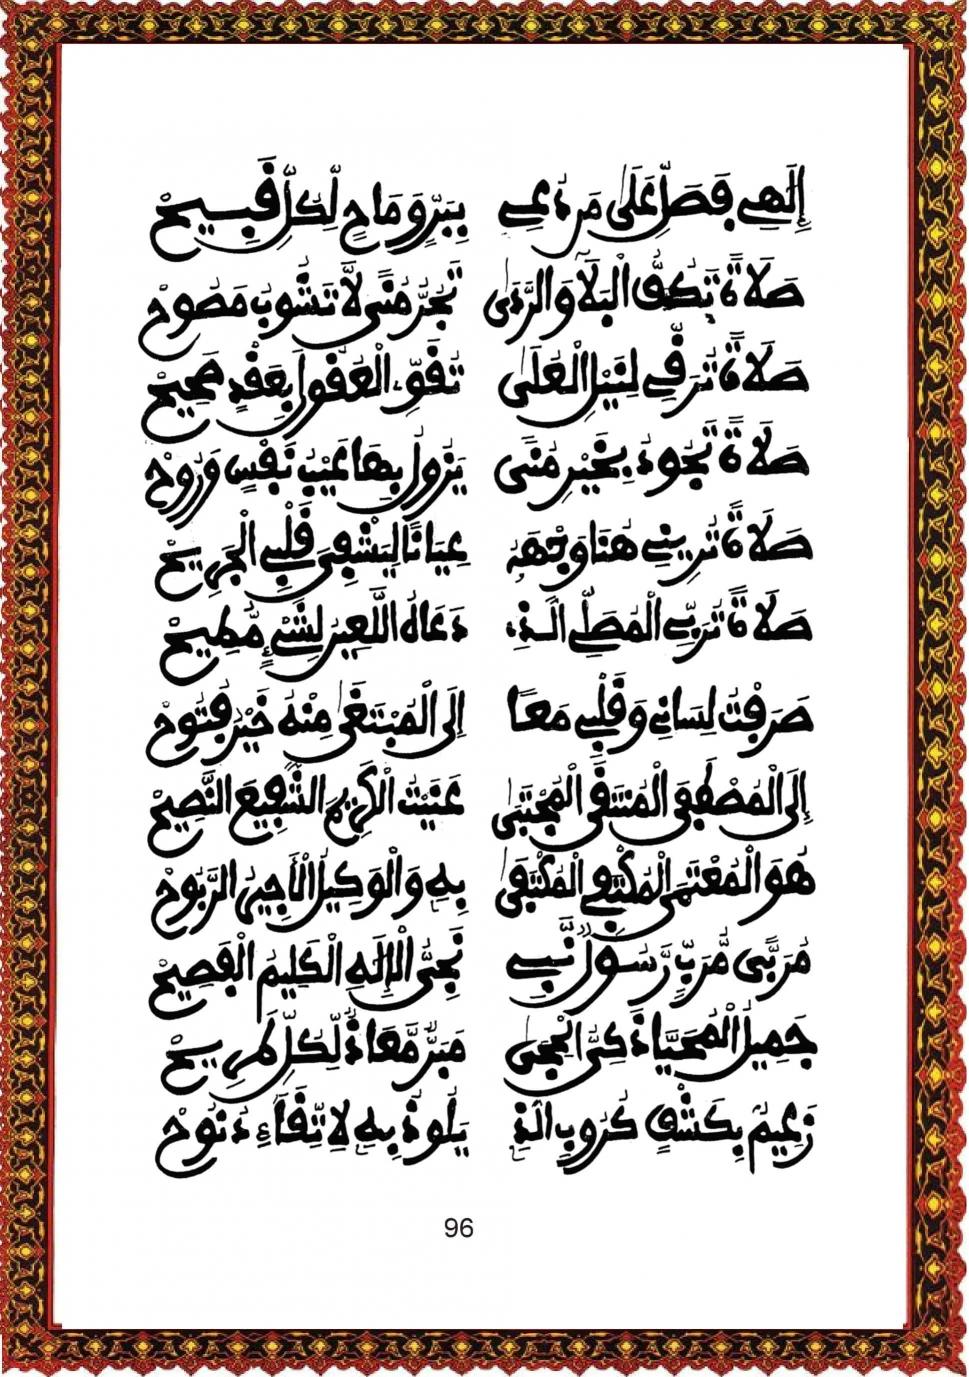 إِلَهِي فَصَلِّ عَلَى مَن دُعِي بِبَرٍّ وَمَاحٍ لِكُلِّ قَبِيحْ
صَلَاةً تَكُفُّ الْبَلَا وَالرَّدَى تَجُرُّ مُنًى لَّا تُشُوبُ
صَلَاةً تُرَقِّي لِنَيْلِ الْعُلَى تُقَوِّي الْعُقُولَ بِعَقْدٍ صَحِيحْ
صَلَاةً تَجُودُ بِخَيْرِ مُنًى يَزُولُ بِهَا عَيْبُ نَفْسٍ وَرُوحْ
صَلَاةً تُرِينِي هُنَا وَجْهَهُ عِيَانًا لِيَشْفِيَ قَلْبِي الْجَرِيحْ
صَلَاةً تُرَبِّي الْمُصَلِّي الَّذِي دَعَاهُ اللَّعِينُ لِشَيْءٍ
صَرَفْتُ لِسَانِي وَقَلْبِي مَعًا إِلَى الْمُبْتَغَى مِنْهُ خَيْرُ فُتُوحْ
إِلَى الْمُصْطَفَى الْمُنْتَقَى الْمُجْتَبَى عَنَيْتُ الْكَرِيمَ الشَّفِيعَ النَّصِيحْ
هُوَ الْمُعْتَمَى الْمُكْتَفِي الْمُكْتَفَى بِهِ وَالْوَكِيلُ الْأَجِيرُ الرَّبُوحْ
مُرَبَّى مُّرَبٍّ رَّسُولٌ نَّبِي نَجِيُّ الْإِلَهِ الْكَلِيمُ الْفَصِيحْ
جَمِيلُ الْمُحَيَّا ذَكِيُّ الْحِجَى مَبَرٌّ مَّعَاذٌ لِّكُلِّ
زَعِيمٌ بِكَشْفِ كُرُوبِ الَّذِي يَلُوذُ بِهِ لَاتِّقَاءِ
96